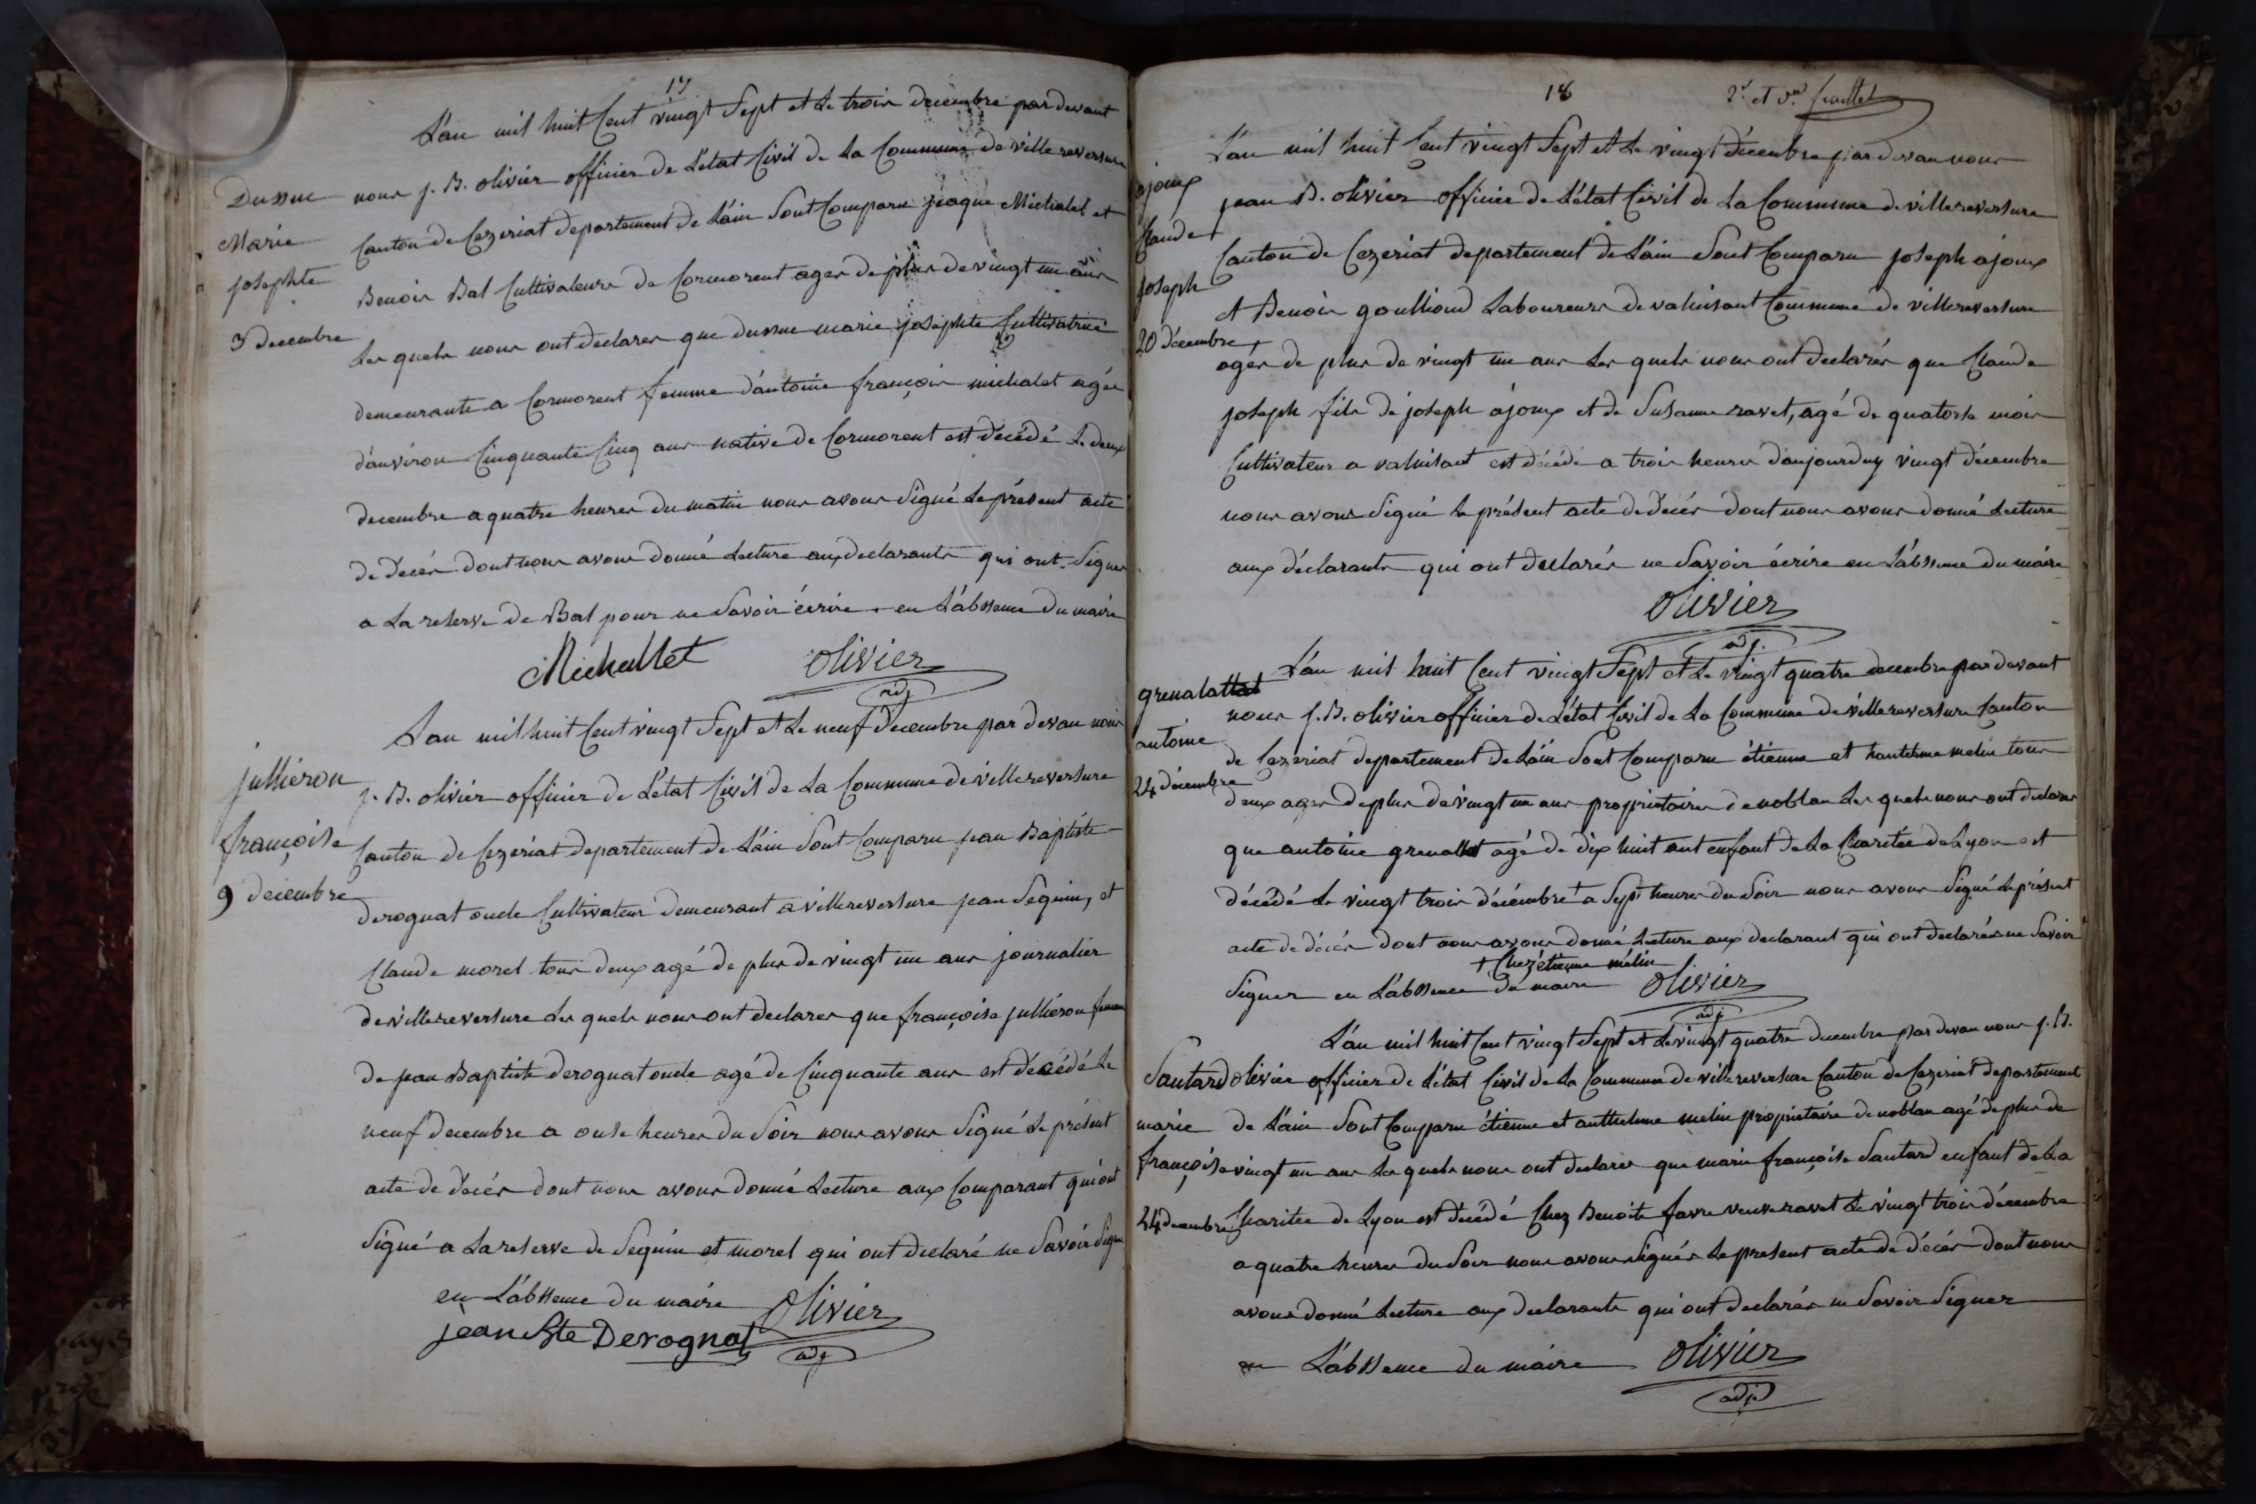 17
L'an mil huit Cent vingt Sept et Le trois decembre par devant
nous j. B. olivier officier de L'etat Civil de La Commune de villereversure
Canton de Cezeriat departement de L'ain Sont Comparu jeaque Michalet et
Benois Bal Cultivateurs de Cormorent ages de plus de vingt un ans
Les quels nous ont declares que dussue marie josephte Cultivatrice
demeurante a Cormorent femme d'antoine françois michalet agée
d'anviron Cinquante Cinq ans native de Cormorent est décédé Le deux
decembre a quatre heures du matin nous avons Signé Le présent acte
de décés dont nous avons donné Lecture aux declarants qui ont Signer
a La reserve de Bal pour ne Savoir écrire en L'abssence du maire
Dussue
Marie
josephte
3 decembre
Michallet olivier
adj
L'an mil huit Cent vingt Sept et Le neuf decembre par devan nous
j. B. olivier officier de L'état Civil de La Commune de villereversure
Canton de Cezeriat departement de L'ain Sont Comparu jean Baptiste
derognat oncle Cultivateur demeurant a villereversure jean Seguin, et
Claude morel tous deux agé de plus de vingt un ans journalier
de villereversure Les quels nous ont declares que françoise jullieron femme
de jean Baptiste derognat oncle agé de Cinquante ans est décédé Le
neuf decembre a onse heures du Soir nous avons Signé Le présent
acte de décés dont nous avons donné Lecture aux Comparant qui ont
Signé a La reserve de Seguin et morel qui ont declaré ne Savoir Signer
en L'abssence du maire olivier
jullieron
françoise
9 decembre
jean Bte Derognat adj
18
2e et dr feuillet
L'an mil huit Cent vingt Sept et Le vingt décembre par devan nous
jean B. olivier officier de L'état Civil de La Commune de villereversure
Canton de Cezeriat departement de L'ain Sont Comparu joseph ajoux
et Benois goullioud Laboureurs de valuisant Commune de villereversure
agés de plus de vingt un ans Les quels nous ont declarés que Claude
joseph fils de joseph ajoux et de Susanne ravet, agé de quatorse mois
Cultivateur a valuisant est décédé a trois heures d'aujourduy vingt décembre
nous avons Signé Le présent acte de décés dont nous avons donné Lecture
aux déclarants qui ont declarés ne Savoir écrire en L'abssence du maire
ajoux
Claude
joseph
20 décembre
olivier
adj.
L'an mil huit Cent vingt Sept et Le vingt quatre decembre par devant
nous j. B. olivier officier de L'état Civil de La Commune de villereversure Canton
de Cezeriat departement de L'ain Sont Comparu étienne et hantelme melin tous
deux ages de plus de vingt un ans proprietaires de noblan Les quels nous ont declares
que antoine grenallat agé de dix huit ant enfant de La Charitée de Lyon est
décédé Le vingt trois décembre + a Sept heures du Soir nous avons Signé Le présent
acte de décés dont nous avons donné Lecture aux declarant qui ont declarés ne Savoir
+ Chez étienne mélin
Signer en L'abssence du maire olivier
adj
grenalattat
antoine
24 décembre
L'an mil huit Cent vingt Sept et Le vingt quatre decembre par devan nous j. B.
olivier officier de L'état Civil de La Commune de villereversure Canton de Cezeriat departement
de L'ain Sont Comparu étienne et anthelme melin propriétaire de noblan agé de plus de
vingt un ans Les quels nous ont declares que marie françoise Santard enfant de La
Charitee de Lyon est décédé Chez Benoite favre veuve ravet Le vingt trois décembre
a quatre heures du Soir nous avons Signés Le present acte de décés dont nous
avons donné Lecture aux declarants qui ont declarés ne Savoir Signer
en L'abssence du maire olivier
adj
Santard
marie
françoise
24 decembre